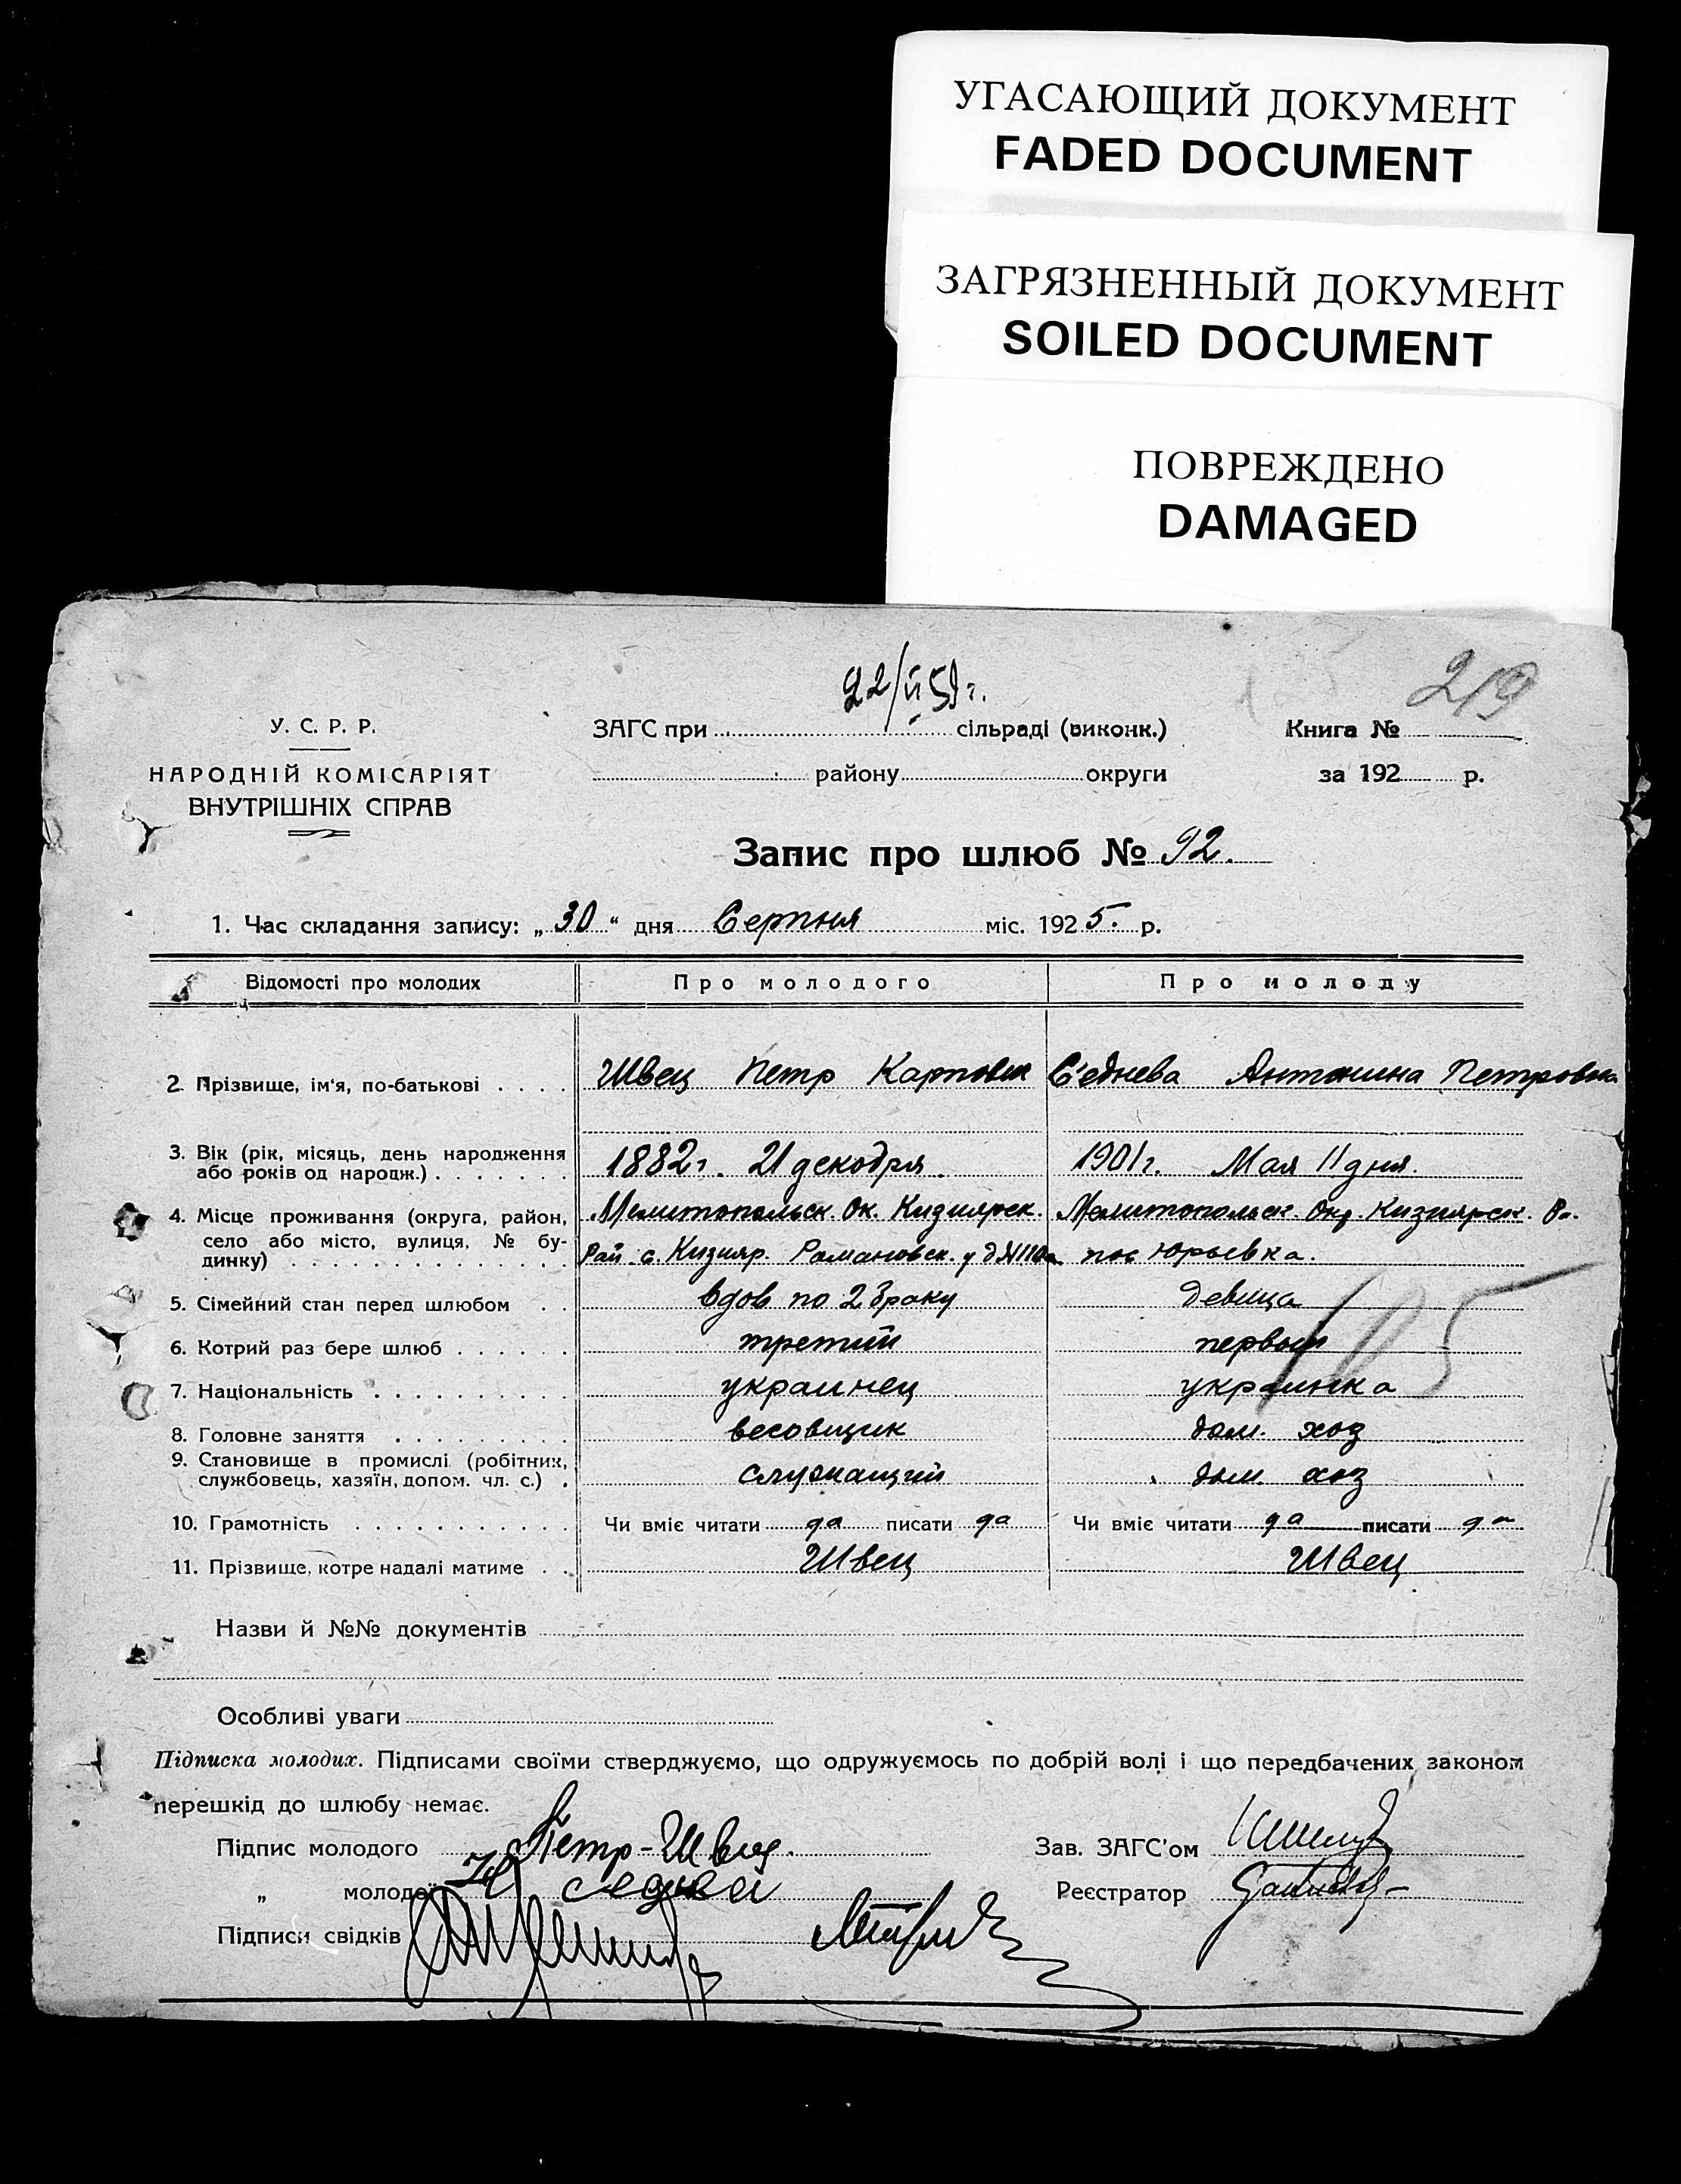 УГАСАЮЩИЙ ДОКУМЕНТ
FADED DOCUMENT
ЗАГРЯЗНЕННЫЙ ДОКУМЕНТ
SOILED DOCUMENT
ПОВРЕЖДЕНО
DAMAGED
219
У. С. Р. Р.
НАРОДНІЙ КОМІСАРІЯТ
ВНУТРІШНІХ СПРАВ
ЗАГС при сільраді (виконк.)
району округи
Книга №
за 192 р.
Запис про шлюб № 92.
1. Час складання запису: „30“ дня Серпня міс. 1925. р.
Відомості про молодих Про молодого Про молоду
2. Прізвище, ім'я, по-батькові . . . . Швец Петр Карпович Сєднева Антонина Петровна
3. Вік (рік, місяць, день народження
або років од народж.) . . . . . . . 1882г. 21 декабря. 1901г. Мая 11 дня.
4. Місце проживання (округа, район, Мелитопольск. Ок. Кизиярск. Мелитопольск. Окр. Кизиярск. Р.
село або місто, вулиця, № бу-
динку) . . . . . . . . . . . . . . Рай. с. Кизияр. Романовск. у д №110а пос Юрьевка.
5. Сімейний стан перед шлюбом . . вдов по 2 браку девица
6. Котрий раз бере шлюб . . . . . . третий первый
105
7. Національність . . . . . . . . . . украинец украинка
8. Головне заняття . . . . . . . . . весовщик дом. хоз
9. Становище в промислі (робітник,
службовець, хазяїн, допом. чл. с.) . служащий дом. хоз
10. Грамотність . . . . . . . . . . . Чи вміє читати да писати да Чи вміє читати да писати да
11. Прізвище, котре надалі матиме . . Швец Швец
Назви й №№ документів
Особливі уваги
Підписка молодих. Підписами своїми стверджуємо, що одружуємось по добрій волі і що передбачених законом
перешкід до шлюбу немає.
Підпис молодого Петр-Швец. Зав. ЗАГС'ом
„ молодої Реєстратор
Підписи свідків